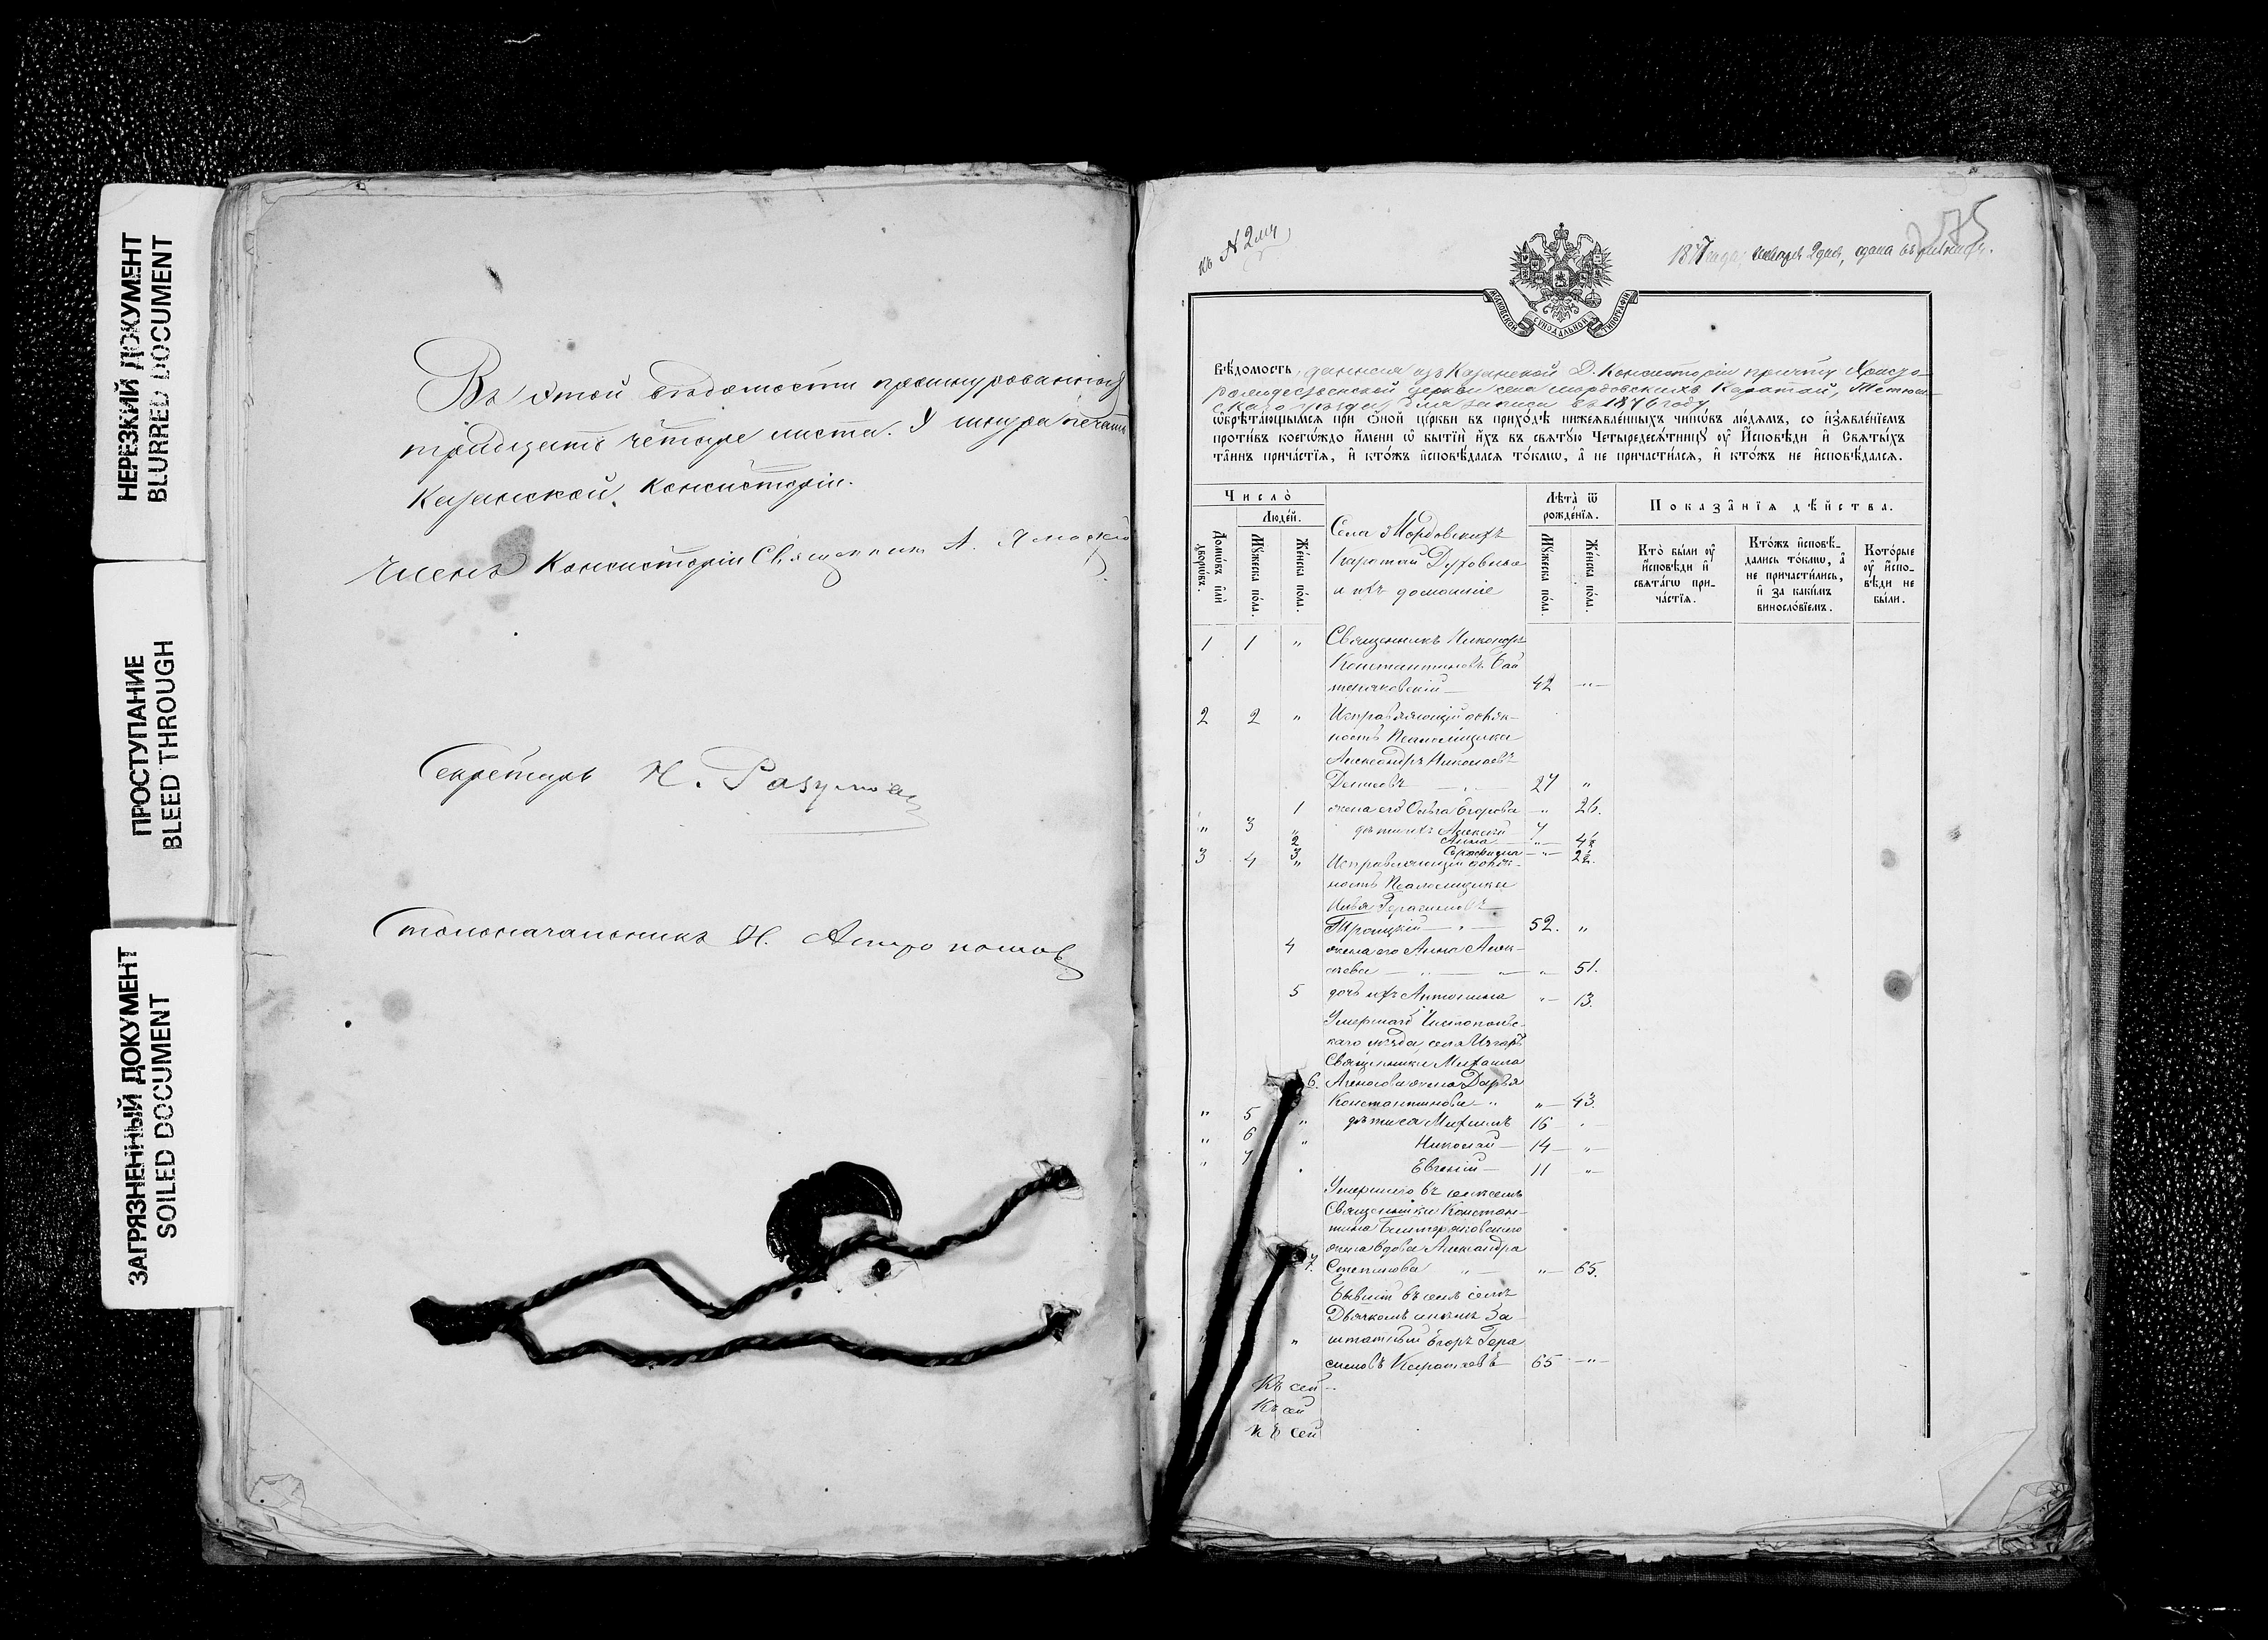 НЕРЕЗКИЙ ДОКУМЕНТ
BLURRED DOCUMENT
ПРОСТУПАНИЕ
BLEED THROUGH
ЗАГРЯЗНЕННЫЙ ДОКУМЕНТ
SOILED DOCUMENT
Въ этой вѣдомости прошнурованной
тридцать четыре листа. У шнура печать
Казанской Консисторіи.
Членъ Консисторіи Священникъ А.
Секретарь Н. Разумовъ
Столоначальникъ Н.
къ N 2му
275
января 2 дня, сдана въ
МОСКОВСКОЙ СѴНОДАЛЬНОЙ ТИПОГРАФІИ
Вѣ́домость данная изъ Казанской Д. Консисторіи причту Христо-
рождественской церкви села Мордовскихъ Каратай, Тетюш-
скаго уѣзда, для записи въ 1876 году
ѡ҆брѣта́ющымсѧ при ѻ҆́ной цр҃кви въ прихо́дѣ нижеѧвле́нныхъ чинѡ́въ лю́демъ, со и҆з̾ѧвле́нїемъ
проти́въ коегѡ́ждо и҆́мени ѡ҆ бытїѝ и҆́хъ въ свѧтꙋ́ю Четыредесѧ́тницꙋ оу҆ И҆́сповѣди и҆ Свѧты́хъ
та̑инъ прича́стїѧ, и҆ кто́жъ и҆сповѣ́далсѧ то́кмѡ, а҆ не причасти́лсѧ, и҆ кто́жъ не и҆сповѣ́далсѧ.
Число̀
Люде́й.
Домѡ́въ и҆лѝ дворѡ́въ.
Мꙋ́жеска по́ла.
Же́нска по́ла.
Села Мордовскихъ
Каратай Духовные
и ихъ домашніе
Лѣ́та ѿ рожде́нїѧ.
Мꙋ́жеска по́ла.
Же́нска по́ла.
Показа̑нїѧ дѣ́йства.
Кто̀ бы́ли оу҆ и҆́сповѣди и҆ свѧта́гѡ прича́стїѧ.
Кто́жъ и҆сповѣ́дались то́кмѡ, а҆ не причасти́лись, и҆ за каки́мъ виносло́вїемъ.
Кото́рые оу҆ и҆́сповѣди не бы́ли.
1 1 " Священникъ Никаноръ
Константиновъ Бай
теряковскій 42 "
2 2 " Исправляющій долж-
ность Псаломщика
Александръ Николаевъ
27 "
1 жена его Ольга Егорова " 26.
" 3 " дѣти ихъ Алексѣй 7
2 Анна " 4½
3 " 2½.
3 4 " Исправляющій долж-
ность Псаломщика
Илья Герасимовъ
Троицкій 52. "
4 жена его Анна Алек-
сѣева " 51.
5 дочь ихъ Антонина " 13.
Умершаго Чистополь-
скаго уѣзда села
Священника Михаила
6. жена Дарья
Константинова " 43.
" 5 " дѣти ея Михаилъ 16 "
" 6 " Николай 14 "
" 7 Евгеній 11 "
Умершаго въ семъ селѣ
Священника Констан-
тина Байтеряковскаго
жена вдова Александра
7. Степанова " 65.
Бывшій въ семъ селѣ
Дьячкомъ нынѣ За-
" штатный Егоръ Гера
симовъ Каратаевъ 65 "
Къ сей
Къ сей
Къ сей